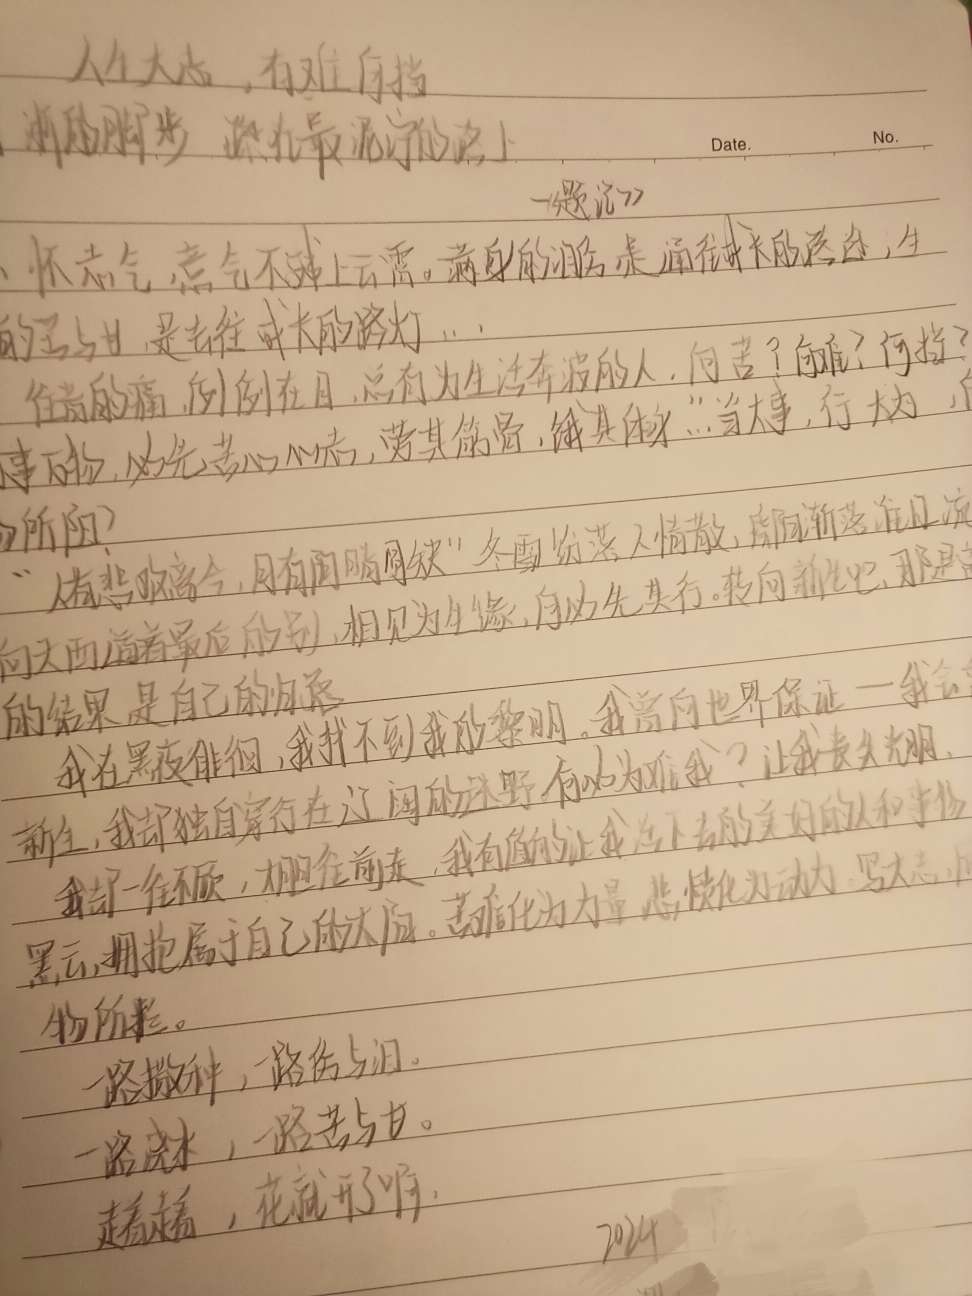 人生大志，有难何挡
渐的脚步 踩在最泥泞的路上
Date. No.
《题记》
怀志气，意气不减上云霄。满身的泪伤是通往成长的路途，生
的苦与甘，是去往成长的路灯…
往昔的痛，例例在目，总有为生活奔波的人，何苦？何难？何挡？
事万物，必先苦心心志，劳其筋骨，饿其体…"当大事，行大为，
所阻？
"人有悲欢离合，月有阴晴圆缺"冬雪纷落人情散，渐落
向天而道着最后的别，相见为生缘，何必先其行。转向新生吧，那是
的结果是自己的归路
我在黑夜徘徊，我找不到我的黎明。我曾向世界保证——我会
新生，我却独自穿行在辽阔的 野，何必为难我？让我丧失光明，
我却一往不欣，大胆往前走，我有值的让我活下去的美好的人和事物
黑云，拥抱属于自己的太阳。苦难化为力量，悲愤化为动力，写大志，
物所拦。
一路撒种，一路伤与泪。
一路浇水，一路苦与甘。
走着走着，花就开了啊，
2024